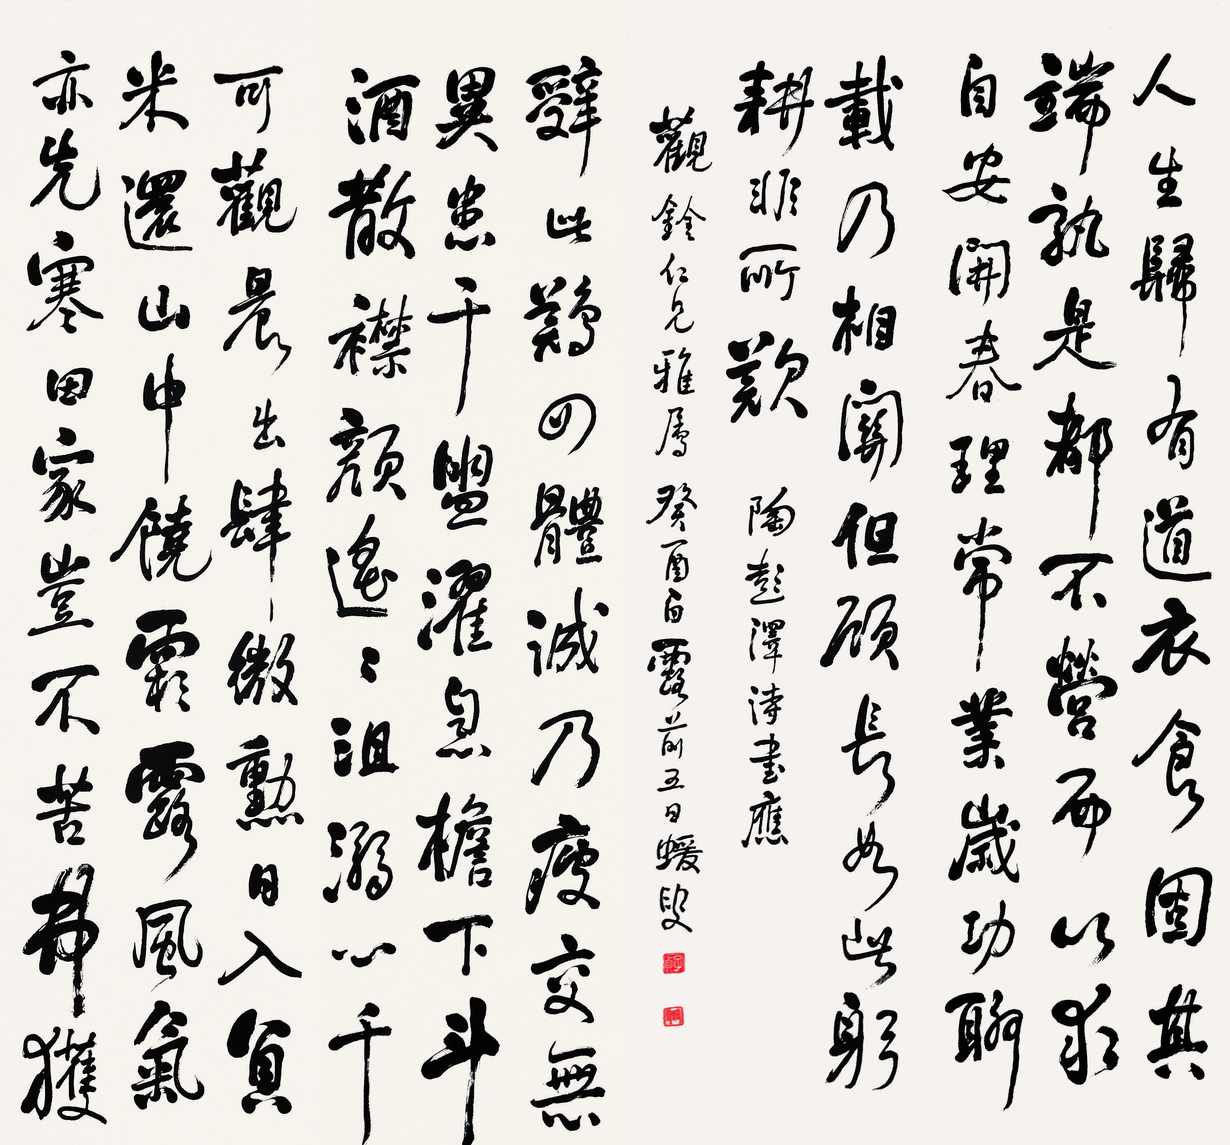 人生歸有道衣食固其
端孰是都不營而以求
自安開春理常業歲功聊
可觀晨出肆微勳日入負
米還山中饒霜露風氣
亦先寒田家豈不苦弗獲
辭此難四體誠乃瘦交無
異患干盥濯息檐下斗
酒散襟顏遙〻沮溺心千
載乃相關但願長如此躬
耕非所歎 陶彭澤詩書應
觀銓仁兄雅屬 癸酉白露前五日蝯叟